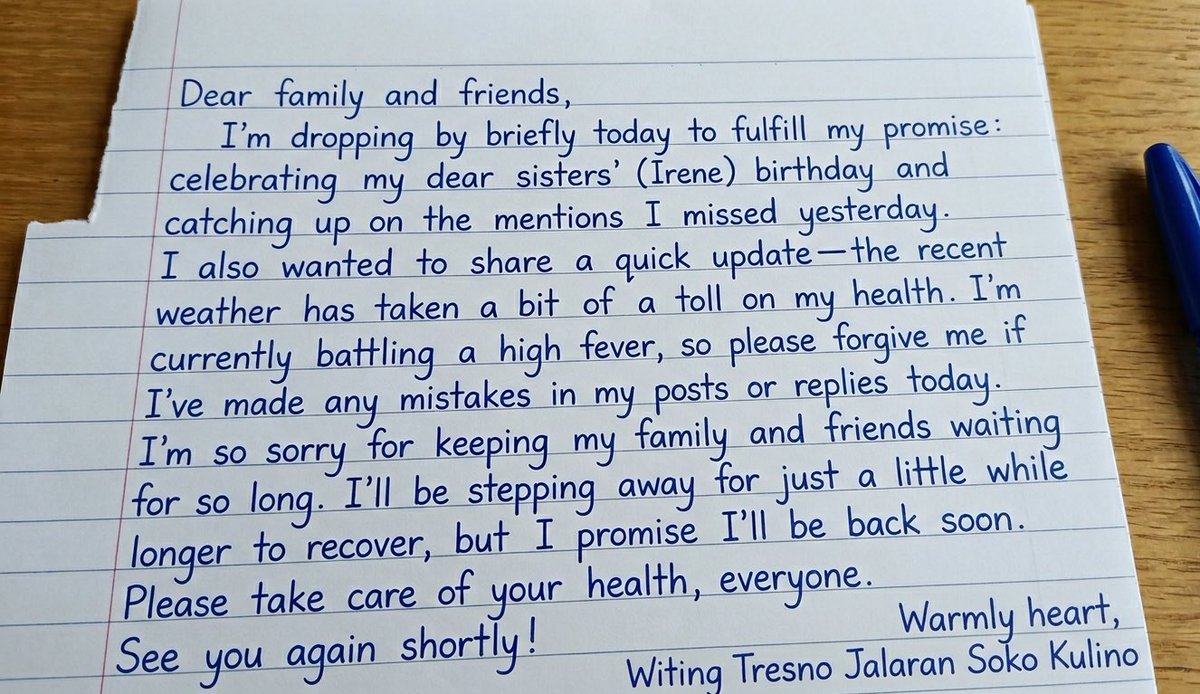 Dear family and friends,
I'm dropping by briefly today to fulfill my promise:
celebrating my dear sisters' (Irene) birthday and
catching up on the mentions I missed yesterday.
I also wanted to share a quick update—the recent
weather has taken a bit of a toll on my health. I'm
currently battling a high fever, so please forgive me if
I've made any mistakes in my posts or replies today.
I'm so sorry for keeping my family and friends waiting
for so long. I'll be stepping away for just a little while
longer to recover, but I promise I'll be back soon.
Please take care of your health, everyone.
See you again shortly!
Warmly heart,
Witing Tresno Jalaran Soko Kulino